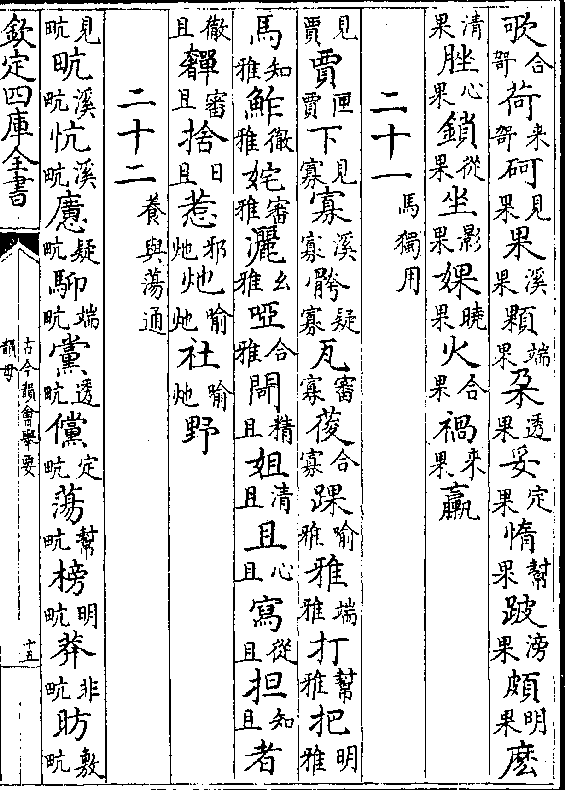 合哿荷來哿砢見果果溪果顆端果朶透果妥定果惰幫果跛滂果頗明果麽
清果脞心果鎖從果坐影果婐曉果火合果禍來果臝
二十一 馬獨用
見賈賈匣賈下見寡寡溪寡髂疑寡瓦審寡葰合寡踝喻雅雅端雅打幫雅把明雅
馬知雅鮓徹雅姹審雅灑幺雅啞合雅閜精且姐清且且心且寫從且抯知且者
徹且奲審且捨日且惹邪灺灺喻灺社喻灺野
二十二 養與蕩通
見㽘㽘溪㽘忼溪㽘懬疑㽘䭹端㽘黨透㽘儻定㽘蕩幫㽘榜明㽘莽非㽘昉敷㽘
欽定四庫全書
古今韻會舉要
韻母
十五